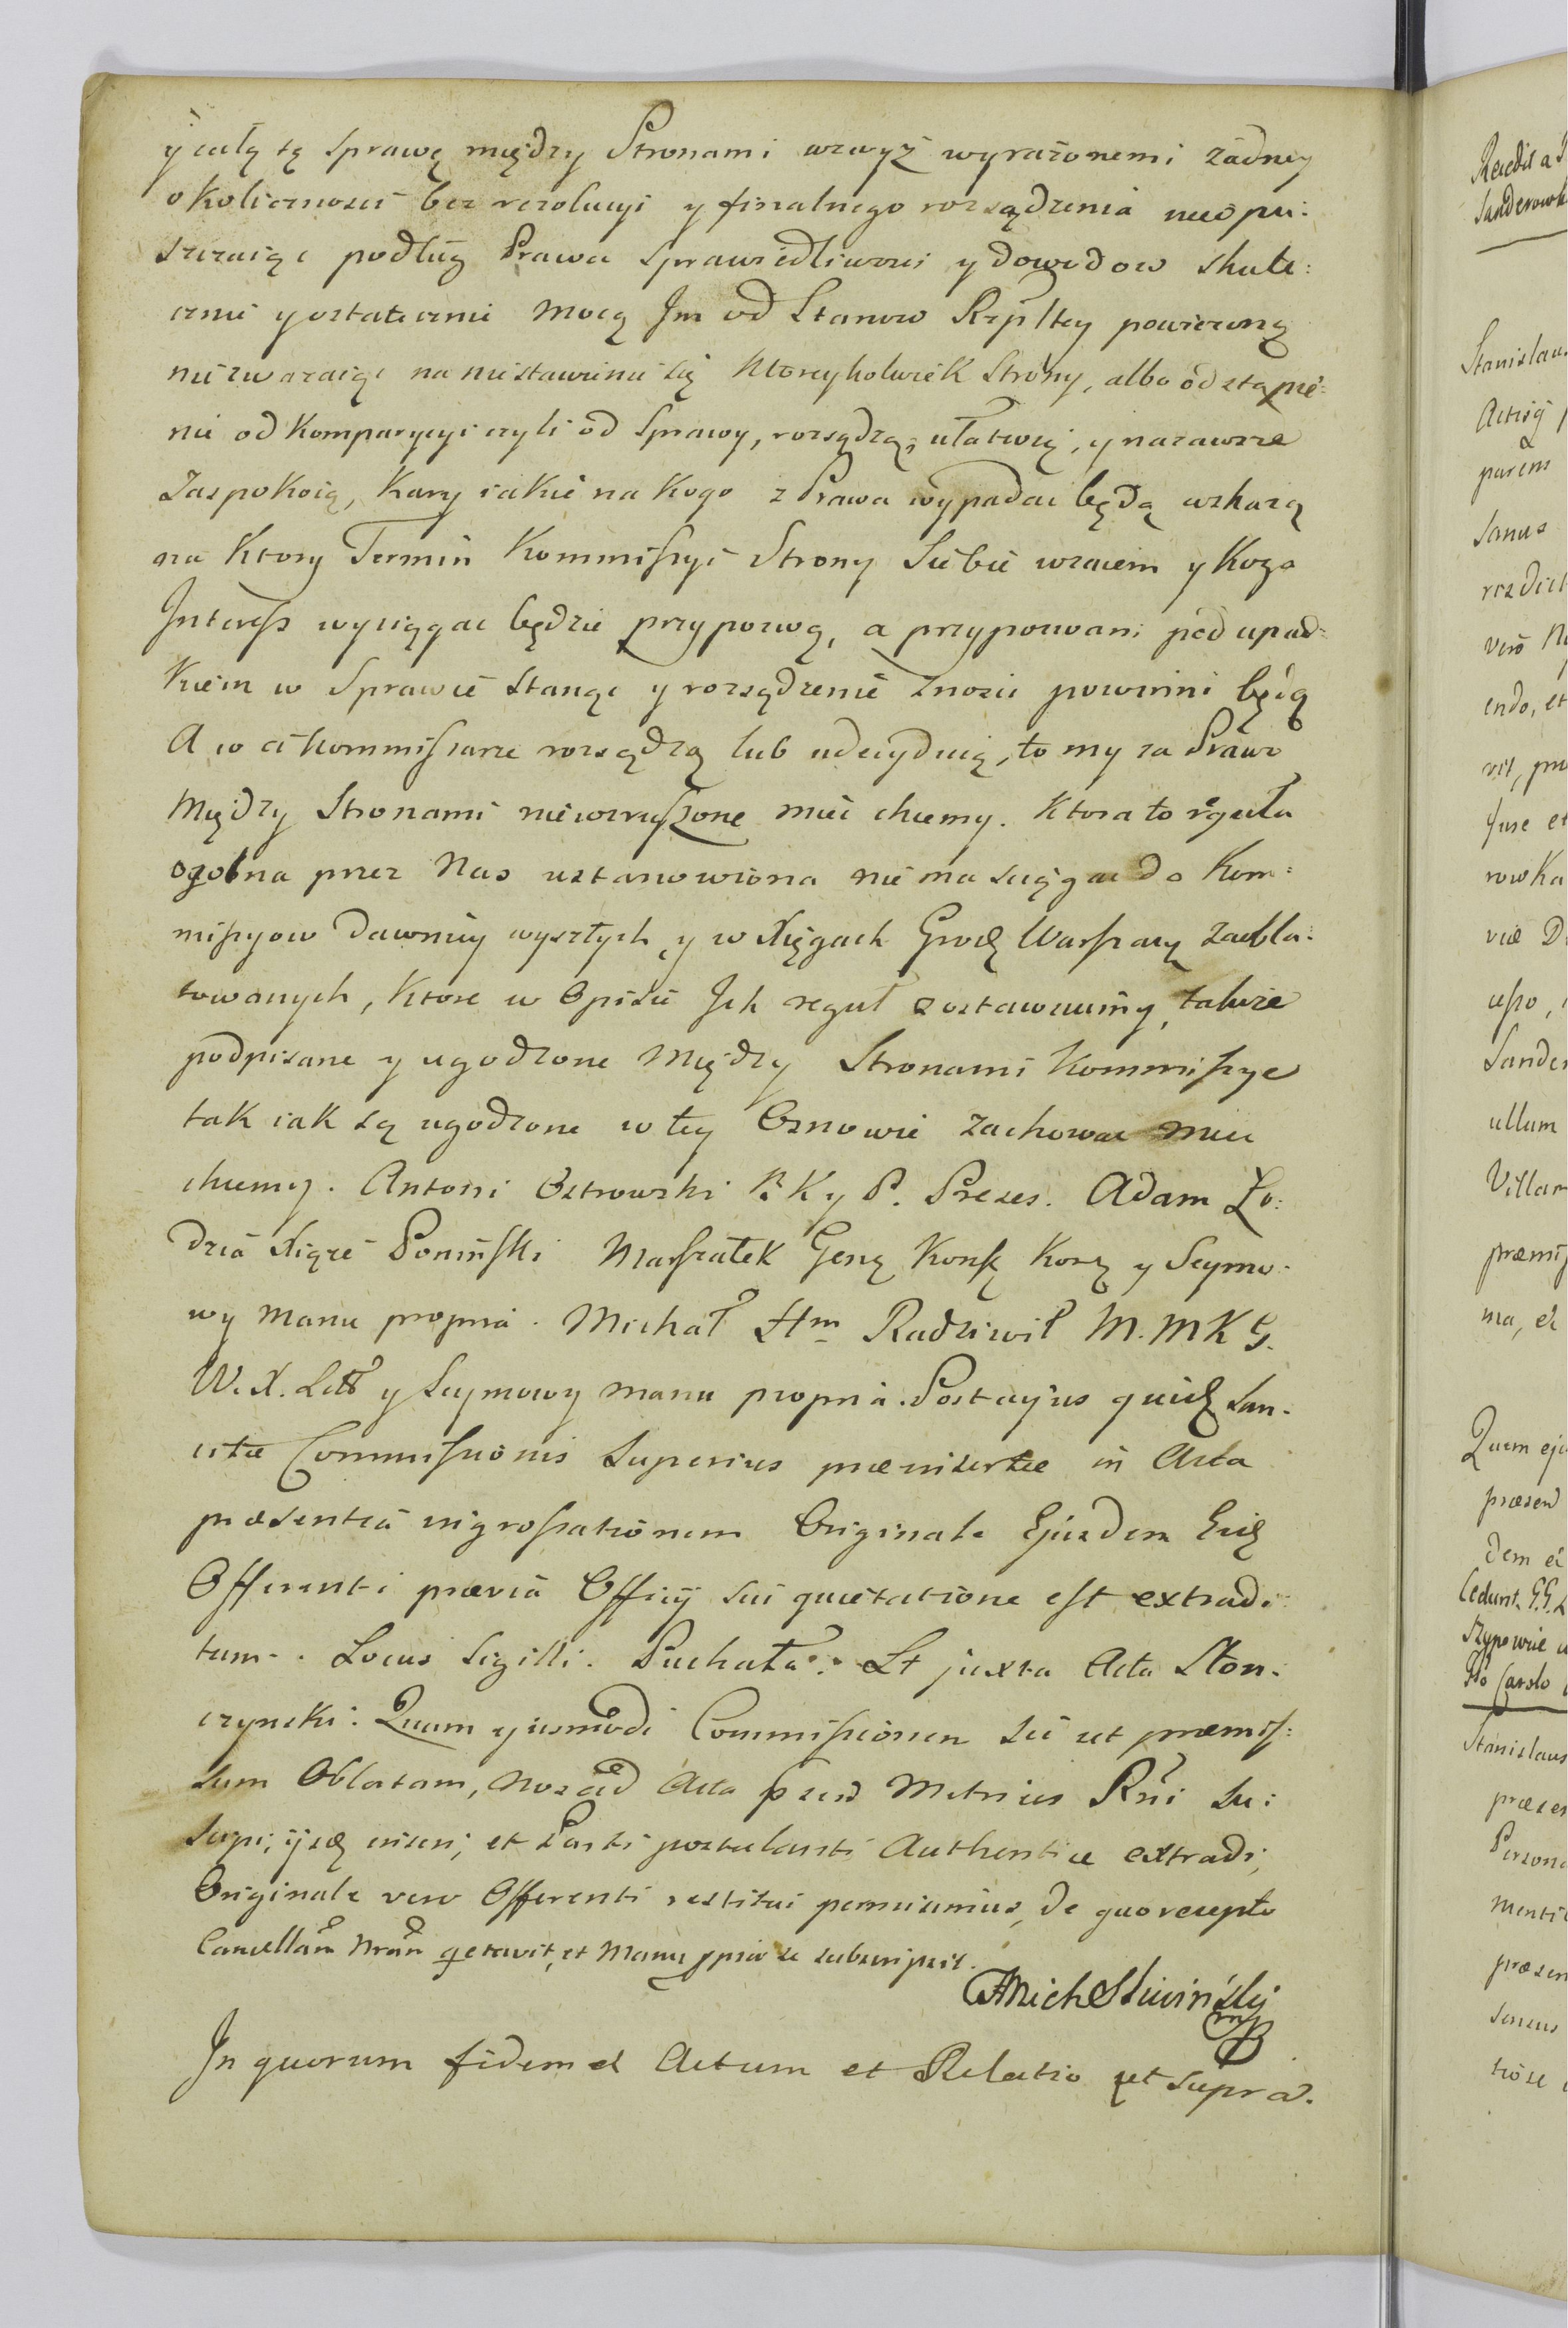 y całą tę Sprawę między Stronami wzwyż wyrażonemi żadney
okolicznosci bez rezolucyi y finalnego rozsądzenia nieopu:
szczaiąc podług Prawa Sprawiedliwosci y dowodow skute:
cznie y ostatecznie Mocą Jm od Stanow Rzpltey powierzoną
nie zwazaiąc na niestawienie się Ktoreykolwiek Strony, albo odstąpie:
nie od Komparycyi czyli od Sprawy, rozsądzą, ułatwią, y nazawsze
Zaspokoią, Kary iakie na Kogo z Prawa wypadac będą wskażą
na Ktory Termin Kommissyi Strony Siebie wzaiem y Kogo
Interess wyciągac będzie przypozwą, a przypozwani pod upad:
Kiem w Sprawie Stanąc y rozsądzenie Znosic powinni będą
A co ci Kommissarze rozsądzą lub udecyduią, to my za Prawo
Między Stronami niewzruszone miec chcemy. Ktora to reguła
ogolna przez Nas ustanowiona nie ma sciągac do Kom:
missyow Dawniey wyszłych y w Xięgach Grodz Warszaw zaobla:
towanych, Ktore w Opisie Jch reguł zostawuiemy, takze
podpisane y ugodzone Między Stronami Kommissye
tak iak są ugodzone w tey Osnowie Zachowac miec
chcemy. Antoni Ostrowski B. K y P. Prezes. Adam Ło:
dzia Xiąże Poniński Marszałek Gen Konf Kor y Seymo:
wy Manu propria. Michał Hm Radziwił M. M K G.
W. X. Litt y Seymowy manu propria. Post cujus quid San:
citæ Commissionis Superius præinsertæ in Acta
præsentia ingrossationem Originale Ejusdem Eid
Offerenti prævia Officij sui quietatione est extradi:
tum. Locus Sigilli. Puchała. Lt juxta Acta Słon:
czynski. Quam ejusmodi Commissionem sic ut præmis:
sum Oblatam, nos ad Acta præsen Metrices Rni Su:
scipi, ijsq inseri, et Parti postulanti Authentice extradi,
Originale vero Offerenti restitui permisimus, de quo recepto
Cancellam Nram qetavit, et Manu ppria se subscripsit.
Mich Sliwiński
mp
In quorum fidem et Actum et Relatio ut supra.